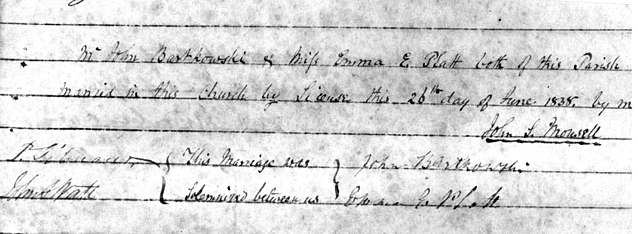 Mr John Bartkowski & Miss Emma E. Platt both of this Parish
married in this Church by License this 26th day of June 1838. by m
John S. Monsell
This Marriage was John Bartkowski
John Platt Solemnized between us Emma E. Platt